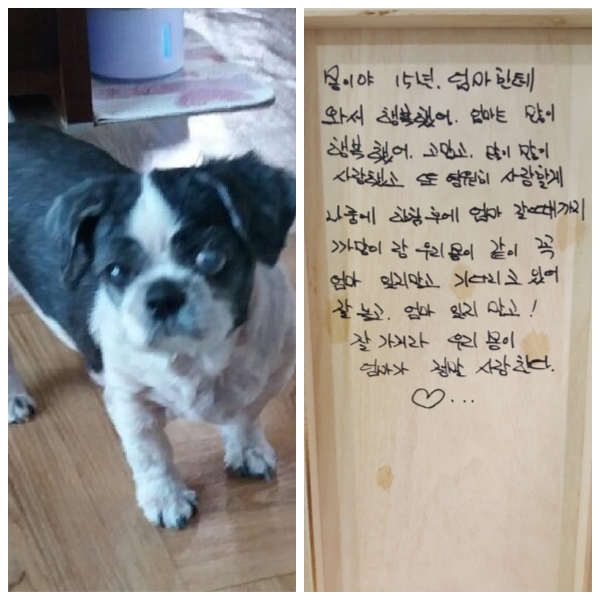 몽이야 15년. 엄마한테
와서 행복했어. 엄마는 많이
행복했어. 고맙고. 많이 많이
사랑했고 또 영원히 사랑할게
나중에 한참후에 엄마 갈때까지
까망이랑 우리몽이 같이 꼭
엄마 잊지말고 기다리고 있어
잘 놀고. 엄마 잊지 말고!
잘 가거라 우리 몽이
엄마가 정말 사랑한다.
♡...